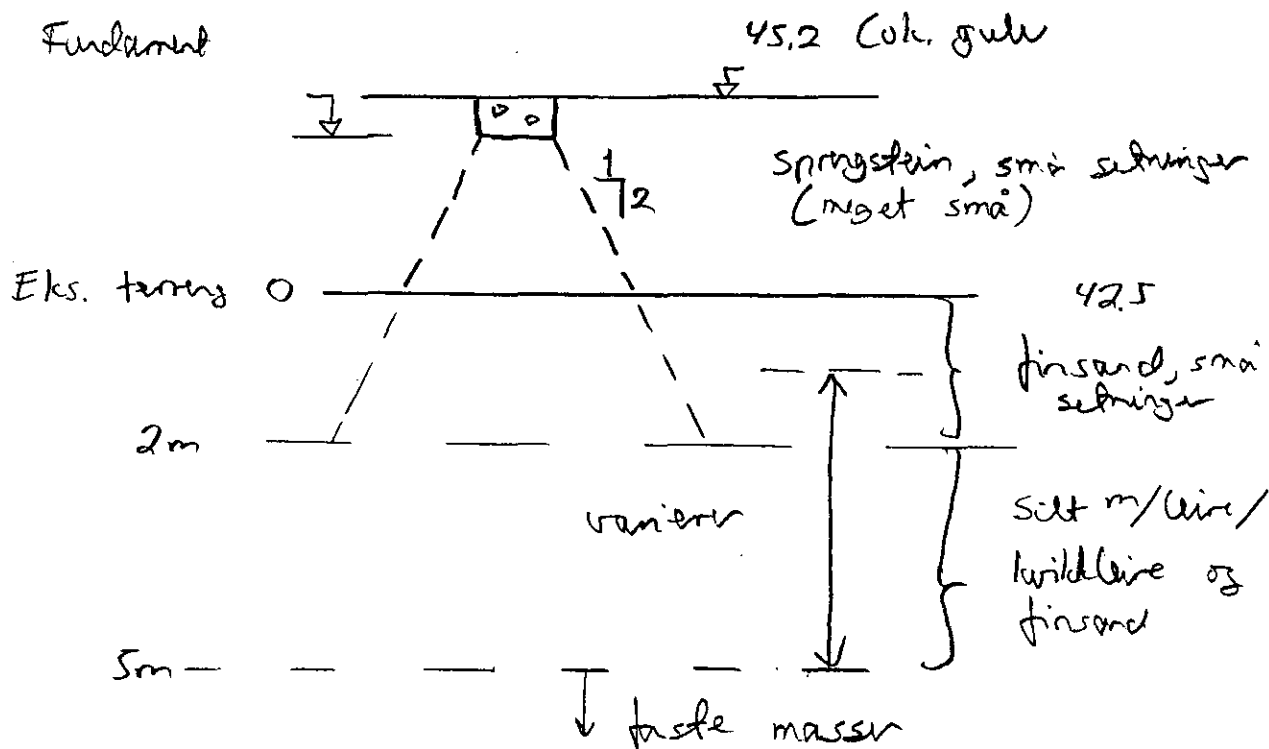 Fundament
45.2 (ok. gulv
1
2
Sprengstein, små setninger
(meget små)
Eks. terreng 0
42.5
finsand, små
setninger
2m
varierer
Silt m/leire/
kvikkleire og
finsand
5m
faste masser